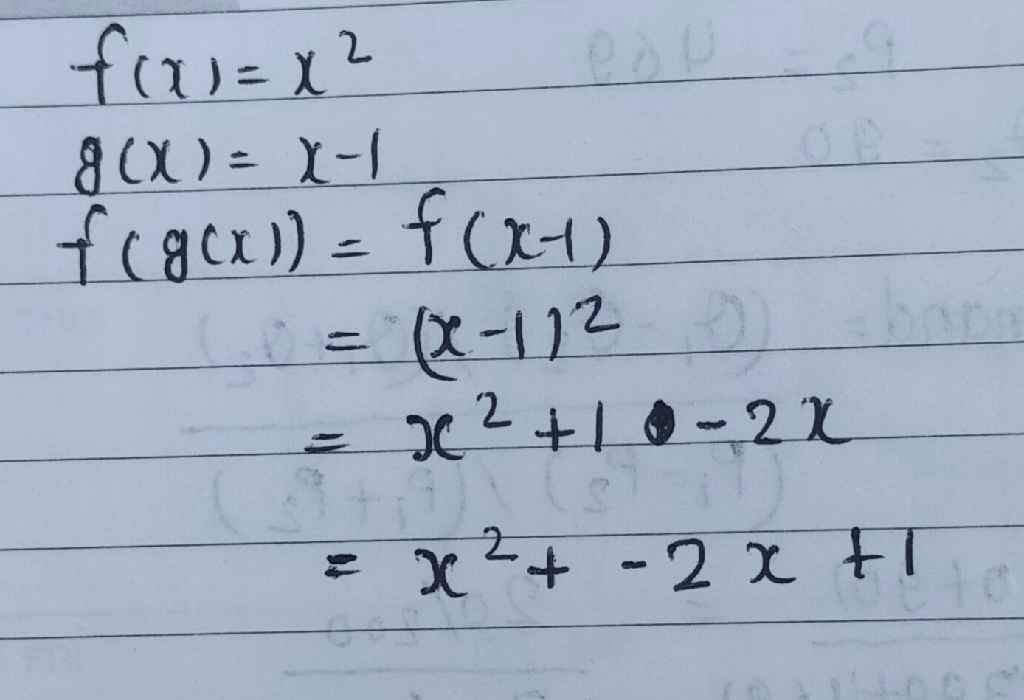 f(x) = x²
g(x) = x-1
f(g(x)) = f(x-1)
= (x-1)²
= x² + 1 - 2x
= x² + - 2x + 1